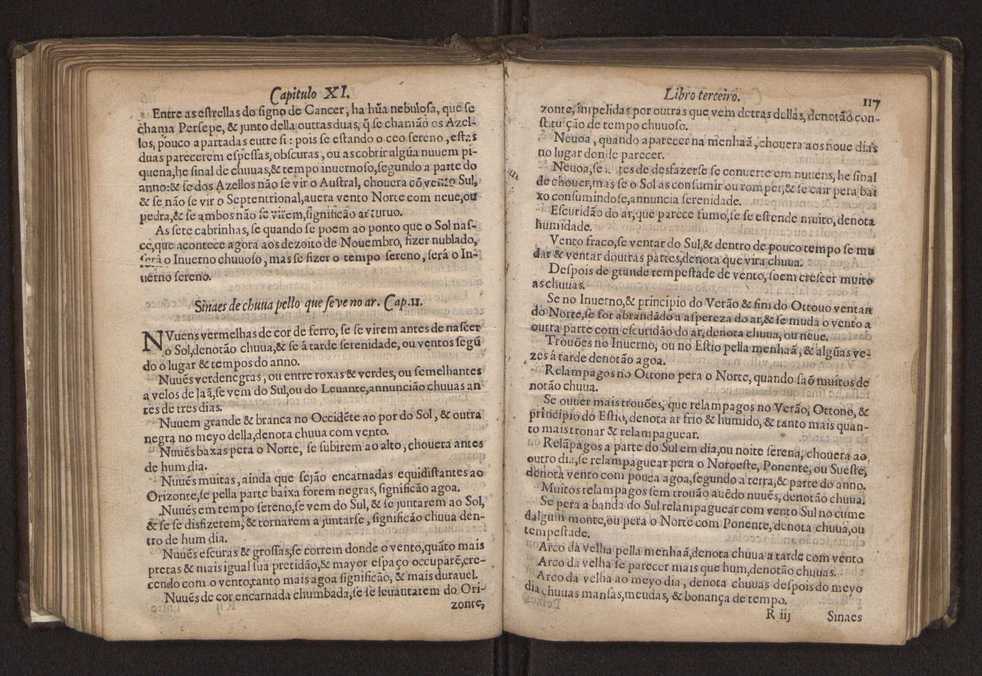 Capitulo XI.
Entre as estrellas do signo de Cancer, ha hũa nebulosa, que se
chama Persepe, & junto della outras duas, q̃ se chamão os Azel-
los, pouco apartadas entre si: pois se estando o ceo sereno, estas
duas parecerem espessas, obscuras, ou as cobrir algũa nuuem pi-
quena, he sinal de chuuas, & tempo inuernoso, segundo a parte do
anno: & se dos Azellos não se vir o Austral, chouera cõ vento Sul,
& se não se vir o Septentrional, auera vento Norte com neue, ou
pedra, & se ambos não se virem, significão ar turuo.
As sete cabrinhas, se quando se poem ao ponto que o Sol nas-
ce, que acontece agora aos dezoito de Nouembro, fizer nublado,
será o Inuerno chuuoso, mas se fizer o tempo sereno, será o In-
uerno sereno.
Sinaes de chuua pello que se ve no ar. Cap. 11.
NVuens vermelhas de cor de ferro, se se virem antes de nascer
o Sol, denotão chuua, & se à tarde serenidade, ou ventos segũ
do o lugar & tempos do anno.
Nuuẽs verdenegras, ou entre roxas & verdes, ou semelhantes
a velos de laã, se vem do Sul, ou do Leuante, annuncião chuuas an
tes de tres dias.
Nuuem grande & branca no Occidẽte ao por do Sol, & outra
negra no meyo della, denota chuua com vento.
Nuuẽs baxas pera o Norte, se subirem ao alto, chouera antes
de hum dia.
Nuuẽs muitas, ainda que sejão encarnadas equidistantes ao
Orizonte, se pella parte baixa forem negras, significão agoa.
Nuuẽs em tempo sereno, se vem do Sul, & se juntarem ao Sol,
& se se disfizerem, & tornarem a juntarse, significão chuua den-
tro de hum dia.
Nuuẽs escuras & grossas, se correm donde o vento, quãto mais
pretas & mais igual sua pretidão, & mayor espaço occuparẽ, cre-
cendo com o vento, tanto mais agoa significão, & mais durauel.
Nuuẽs de cor encarnada chumbada, se se leuantarem do Ori-
zonte,
Libro terceiro.
117
zonte, impelidas por outras que vem detras dellas, denotão con-
stitu ção de tempo chuuoso.
Neuoa, quando aparecer na menhaã, chouera aos noue dias
no lugar donde parecer.
Neuoa, se tes de desfazerse se conuerte em nuuens, he sinal
de chouer, mas se o Sol as consumir ou romper, & se cair pera bai
xo consumindose, annuncia serenidade.
Escuridão do ar, que parece fumo, se se estende muito, denota
humidade.
Vento fraco, se ventar do Sul, & dentro de pouco tempo se mu
dar & ventar doutras partes, denota que vira chuua.
Despois de grande tempestade de vento, soem crescer muito
as chuuas.
Se no Inuerno, & principio do Verão & fim do Ottouo ventan
do Norte, se for abrandãdo a aspereza do ar, & se muda o vento a
outra parte com escuridão do ar, denota chuua, ou neue.
Trouões no Inuerno, ou no Estio pella menhaã, & algũas ve-
zes à tarde denotão agoa.
Relampagos no Ottono pera o Norte, quando saõ muitos de
notão chuua.
Se ouuer mais trouões, que relampagos no Verão, Ottono, &
principio do Estio, denota ar frio & humido, & tanto mais quan-
to mais tronar & relampaguear.
Relãpagos a parte do Sul em dia, ou noite serena, chouera ao
outro dia, se relampaguear pera o Noroeste, Ponente, ou Sueste,
denota vento com pouca agoa, segundo a terra, & parte do anno.
Muitos relampagos sem trouão auẽdo nuuẽs, denotão chuua.
Se pera a banda do Sul relampaguear com vento Sul no cume
dalgum monte, ou pera o Norte com Ponente, denota chuua, ou
tempestade.
Arco da velha pella menhaã, denota chuua a tarde com vento
Arco da velha se parecer mais que hum, denotão chuuas.
Arco da velha ao meyo dia, denota chuuas despois do meyo
dia chuuas mansas, meudas, & bonança de tempo.
R iij Sinaes